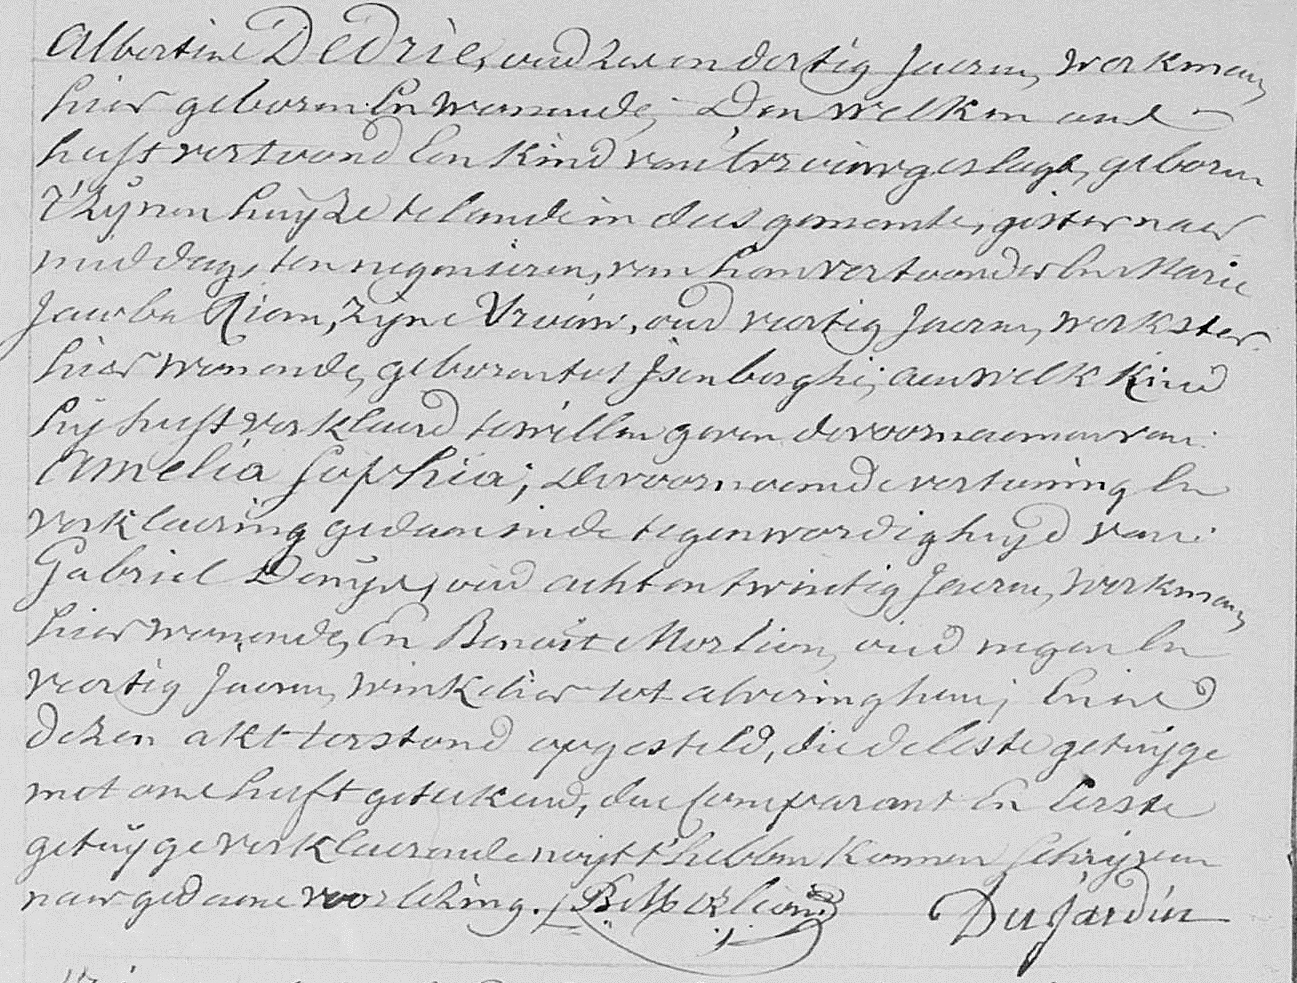 Albertine Dedrie, oud zes en dertig Jaeren, werkman,
hier geboren En Wonende; Den welken ons
heeft vertoond Een Kind van 't vrouwgeslagt, geboren
t'zynen huyze te lande in dees gemeente, gister naer
middag, ten negen uren, van hem vertoonder En Marie
Jacoba Riem, zyne Vrouw, oud veertig Jaeren, werkster
hier wonende, geboren tot Isenberghe; aen welk Kind
hy heeft verklaerd te willen geven de voornaemen van:
Amelia Sophia; de voornoemde vertooning En
verklaering gedaen in de tegenwordigheyd van:
Gabriel Denys, oud acht en twintig Jaeren, Werkman,
hier wonende, En Benoit Merlion, oud negen En
veertig Jaeren, winkelier tot alveringhem; En is
dezen akt terstond opgesteld, die de leste getuyge
met ons heeft geteekend, den Comparant En Eerste
getuyge verklaerende noyt t'hebben konnen schryven
naer gedaene voorlezing. B. Merlion
Dujardin